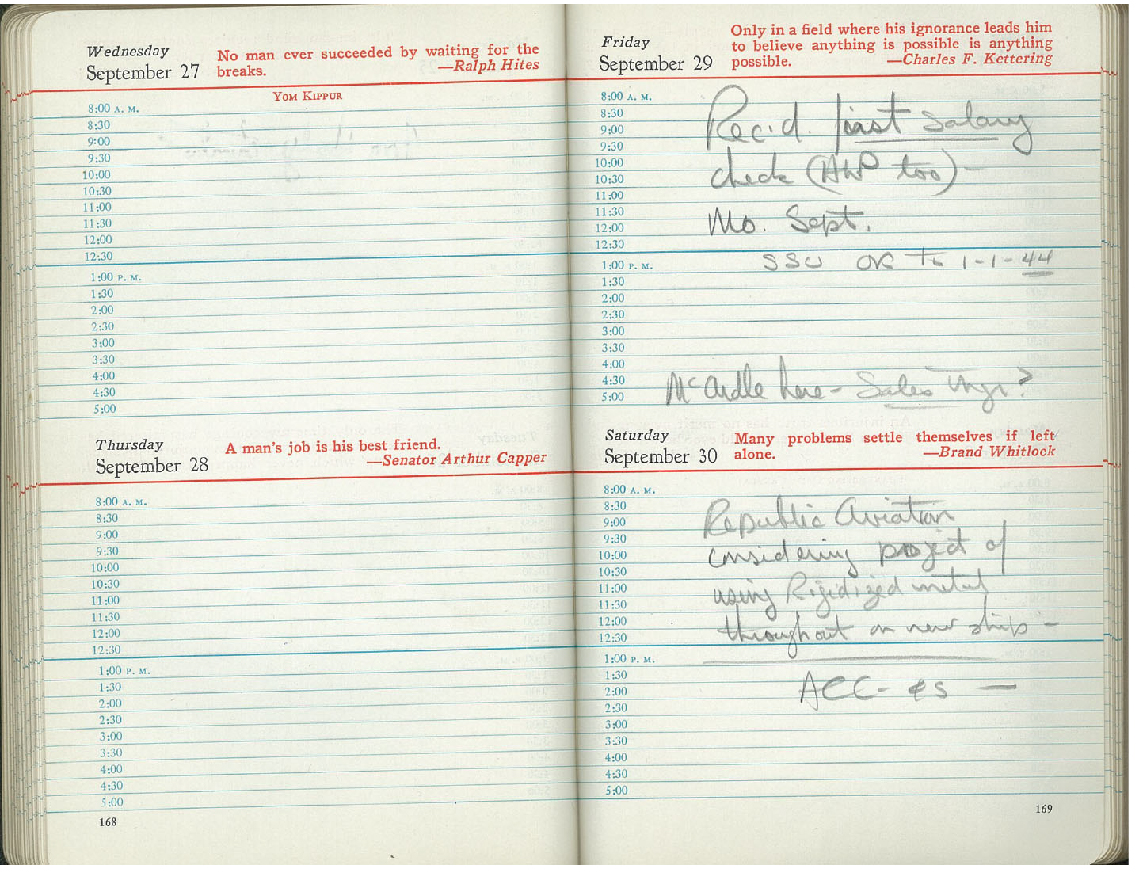 Wednesday
September 27
No man ever succeeded by waiting for the
breaks. —Ralph Hites
YOM KIPPUR
8:00 A. M.
8:30
9:00
9:30
10:00
10:30
11:00
11:30
12:00
12:30
1:00 P. M.
1:30
2:00
2:30
3:00
3:30
4:00
4:30
5:00
Thursday
September 28
A man's job is his best friend.
—Senator Arthur Capper
8:00 A. M.
8:30
9:00
9:30
10:00
10:30
11:00
11:30
12:00
12:30
1:00 P. M.
1:30
2:00
2:30
3:00
3:30
4:00
4:30
5:00
168
Friday
September 29
Only in a field where his ignorance leads him
to believe anything is possible is anything
possible. —Charles F. Kettering
8:00 A. M.
8:30
9:00
9:30
10:00
10:30
11:00
11:30
12:00
12:30
1:00 P. M.
1:30
2:00
2:30
3:00
3:30
4:00
4:30
5:00
Rec'd. first salary
check (AHP too) -
Mo. Sept.
SSU to 1-1-44
McArdle here - Sales Mgr?
Saturday
September 30
Many problems settle themselves if left
alone. —Brand Whitlock
8:00 A. M.
8:30
9:00
9:30
10:00
10:30
11:00
11:30
12:00
12:30
1:00 P. M.
1:30
2:00
2:30
3:00
3:30
4:00
4:30
5:00
Republic Aviation
considering project of
using Rigidized metal
throughout on new ship -
ACC-
169